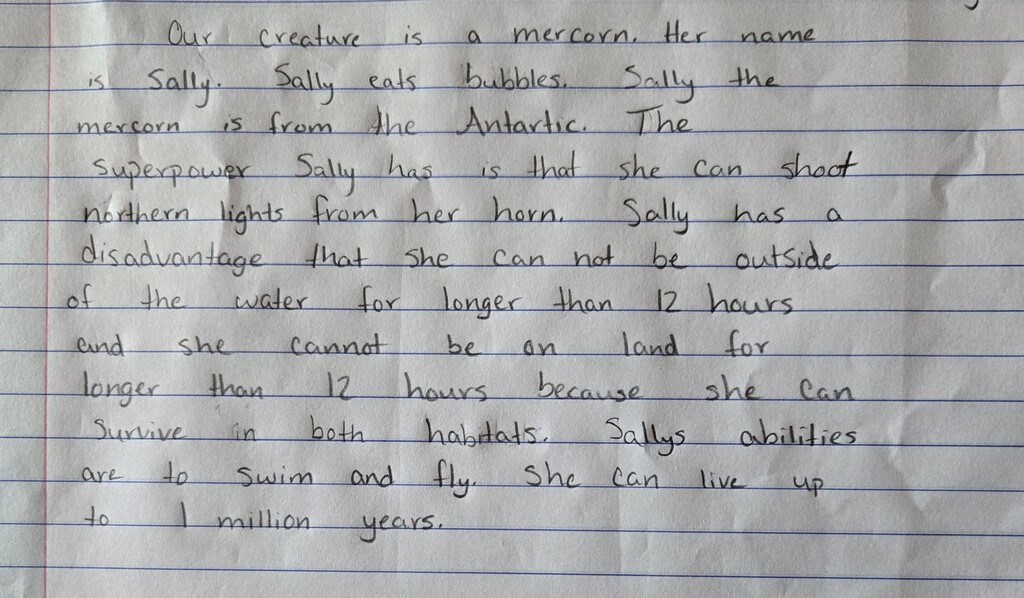 Our creature is a mercorn. Her name
is Sally. Sally eats bubbles. Sally the
mercorn is from the Antartic. The
superpower Sally has is that she can shoot
northern lights from her horn. Sally has a
disadvantage that she can not be outside
of the water for longer than 12 hours
and she cannot be on land for
longer than 12 hours because she can
survive in both habitats. Sallys abilities
are to swim and fly. She can live up
to 1 million years.